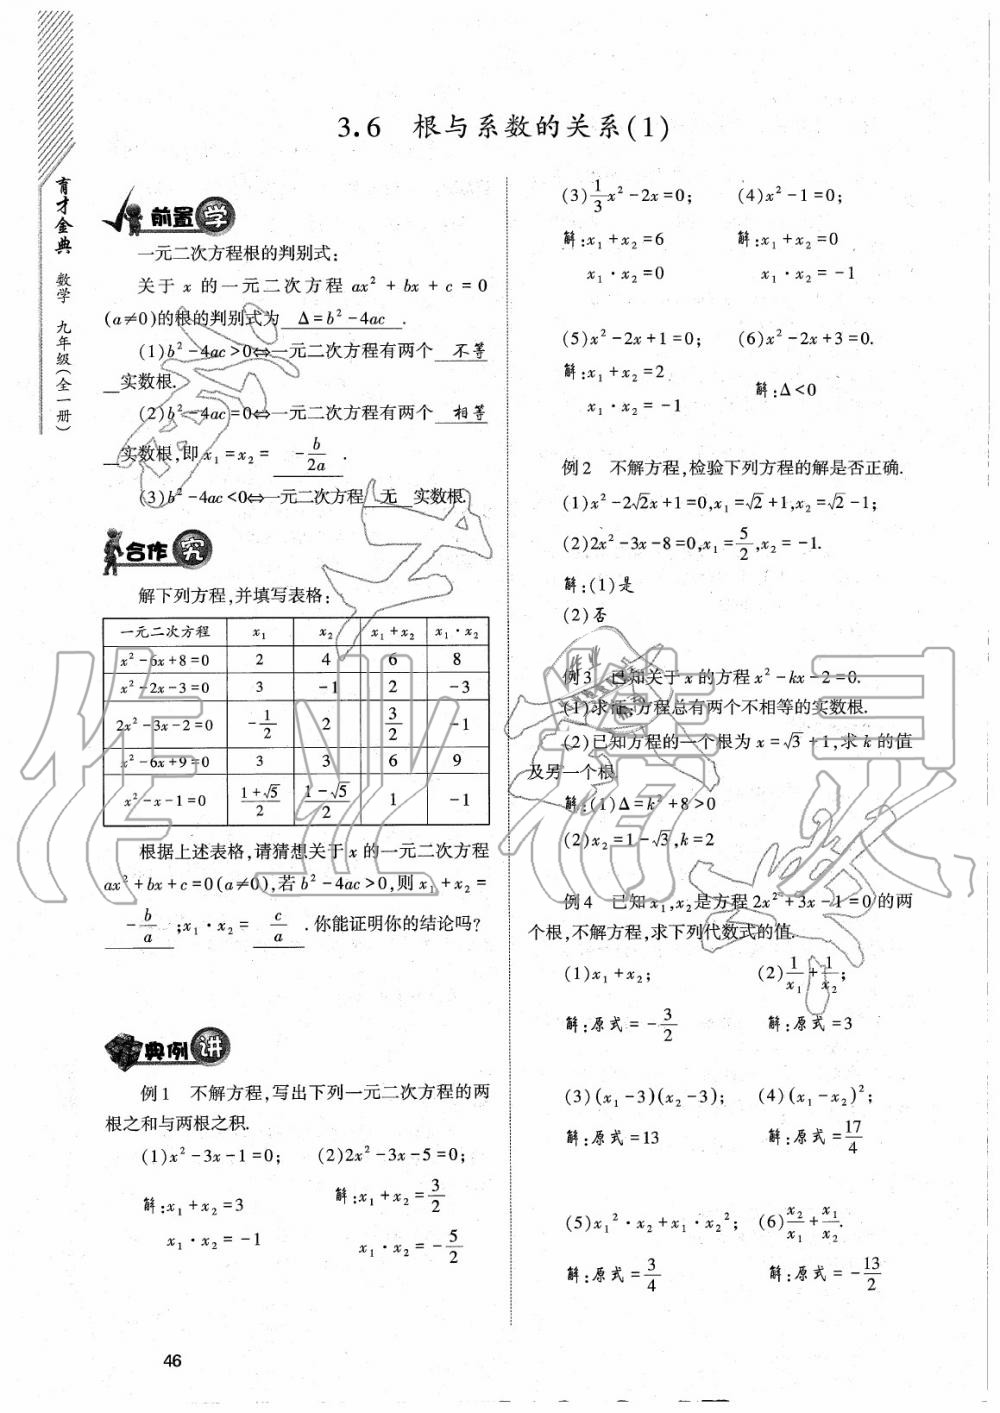 3.6 根与系数的关系(1)
育才金典 数学 九年级(全一册)
前置 学
一元二次方程根的判别式:
关于 x 的一元二次方程 ax² + bx + c = 0
(a≠0)的根的判别式为 Δ=b²-4ac .
(1)b²-4ac>0⇔一元二次方程有两个 不等
实数根.
(2)b²-4ac=0⇔一元二次方程有两个 相等
实数根,即 x₁=x₂= -b/2a .
(3)b²-4ac<0⇔一元二次方程 无 实数根.
合作 究
解下列方程,并填写表格:
一元二次方程 x₁ x₂ x₁+x₂ x₁·x₂
x²-6x+8=0 2 4 6 8
x²-2x-3=0 3 -1 2 -3
2x²-3x-2=0 -1/2 2 3/2 -1
x²-6x+9=0 3 3 6 9
x²-x-1=0 (1+√5)/2 (1-√5)/2 1 -1
根据上述表格,请猜想关于 x 的一元二次方程
ax²+bx+c=0(a≠0),若 b²-4ac>0,则 x₁+x₂=
-b/a ;x₁·x₂= c/a .你能证明你的结论吗?
典例 讲
例1 不解方程,写出下列一元二次方程的两
根之和与两根之积.
(1)x²-3x-1=0; (2)2x²-3x-5=0;
解:x₁+x₂=3 解:x₁+x₂=3/2
x₁·x₂=-1 x₁·x₂=-5/2
(3)1/3x²-2x=0; (4)x²-1=0;
解:x₁+x₂=6 解:x₁+x₂=0
x₁·x₂=0 x₁·x₂=-1
(5)x²-2x+1=0; (6)x²-2x+3=0.
解:x₁+x₂=2 解:Δ<0
x₁·x₂=-1
例2 不解方程,检验下列方程的解是否正确.
(1)x²-2√2x+1=0,x₁=√2+1,x₂=√2-1;
(2)2x²-3x-8=0,x₁=5/2,x₂=-1.
解:(1)是
(2)否
例3 已知关于 x 的方程 x²-kx-2=0.
(1)求证:方程总有两个不相等的实数根.
(2)已知方程的一个根为 x=√3+1,求 k 的值
及另一个根.
解:(1)Δ=k²+8>0
(2)x₂=1-√3,k=2
例4 已知 x₁,x₂是方程 2x²+3x-1=0 的两
个根,不解方程,求下列代数式的值.
(1)x₁+x₂; (2)1/x₁+1/x₂;
解:原式=-3/2 解:原式=3
(3)(x₁-3)(x₂-3); (4)(x₁-x₂)²;
解:原式=13 解:原式=17/4
(5)x₁²·x₂+x₁·x₂²; (6)x₂/x₁+x₁/x₂.
解:原式=3/4 解:原式=-13/2
46
作业精灵